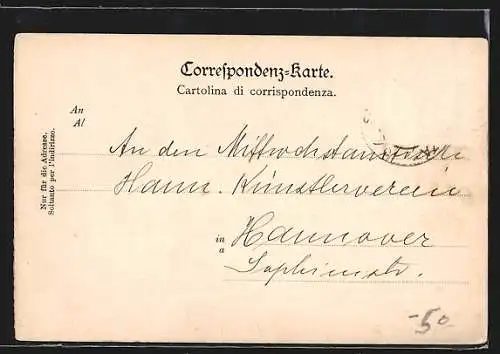 Correspondenz-Karte.
Cartolina di corrispondenza.
An
Al
Nur für die Adresse.
Soltanto per l'indirizzo.
An den Mittwochstammtisch
Hann. Künstlerverein
in
a
Hannover
Sophienstr.
-50